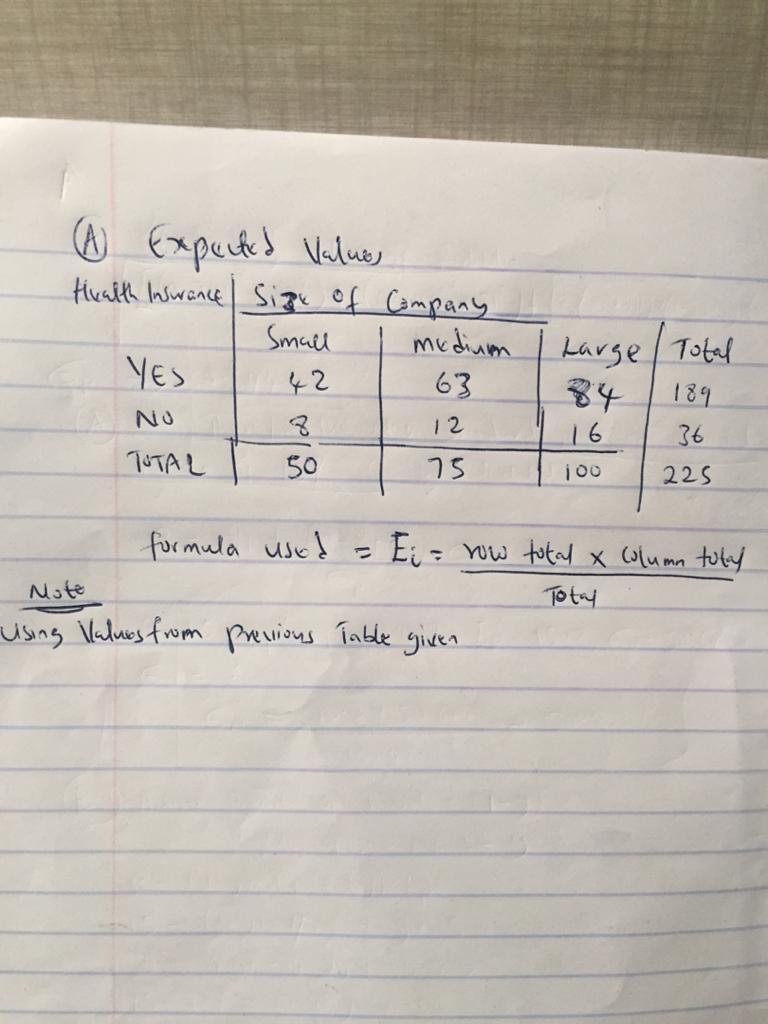 (A) Expected Values
Health Insurance Size of Company
Small medium Large Total
YES 42 63 84 189
NO 8 12 16 36
TOTAL 50 75 100 225
formula used = Ei = row total x column total
Total
Note
Using Values from previous Table given